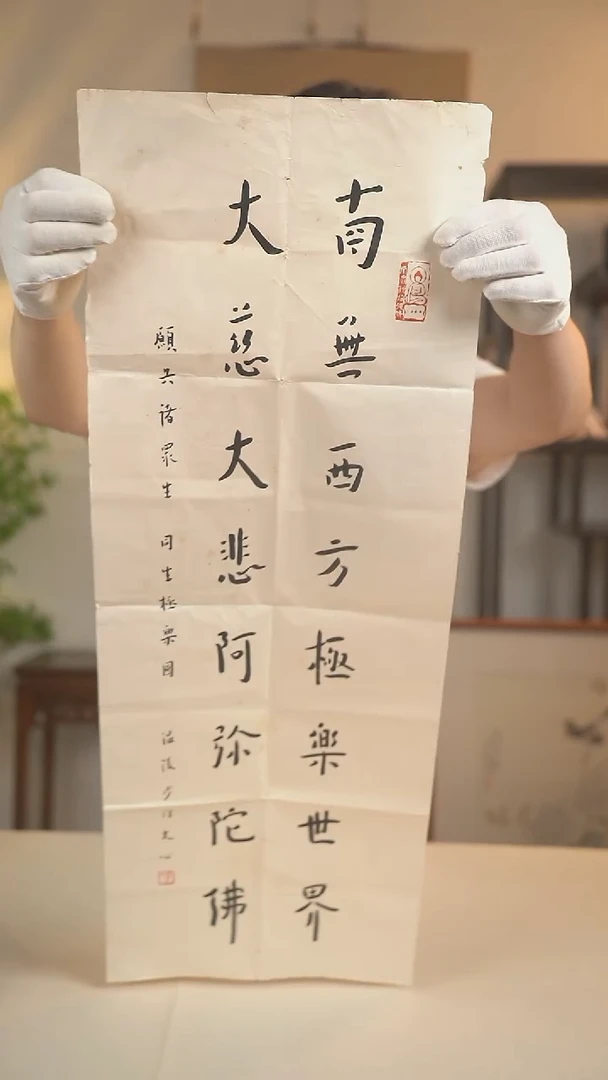 南無西方極樂世界
大慈大悲阿弥陀佛
願共諸眾生 同生極樂國